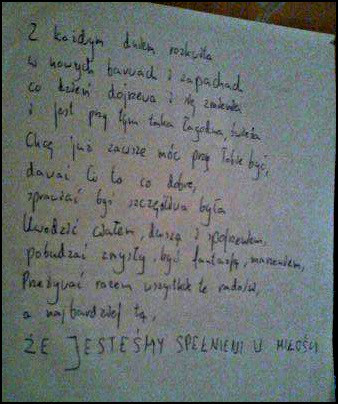 Z każdym dniem rozkwita
w nowych barwach i zapachach
co dzień dojrzewa i się zmienia
i jest przy tym taka łagodna, świeża
Chcę już zawsze móc przy Tobie być,
dawać Ci to co dobre,
sprawiać byś szczęśliwa była
Uwodzić ciałem, duszą i spojrzeniem,
pobudzać zmysły, być fantazją, marzeniem,
Przeżywać razem wszystkie te radości,
a najbardziej tą,
ŻE JESTEŚMY SPEŁNIENI W MIŁOŚCI